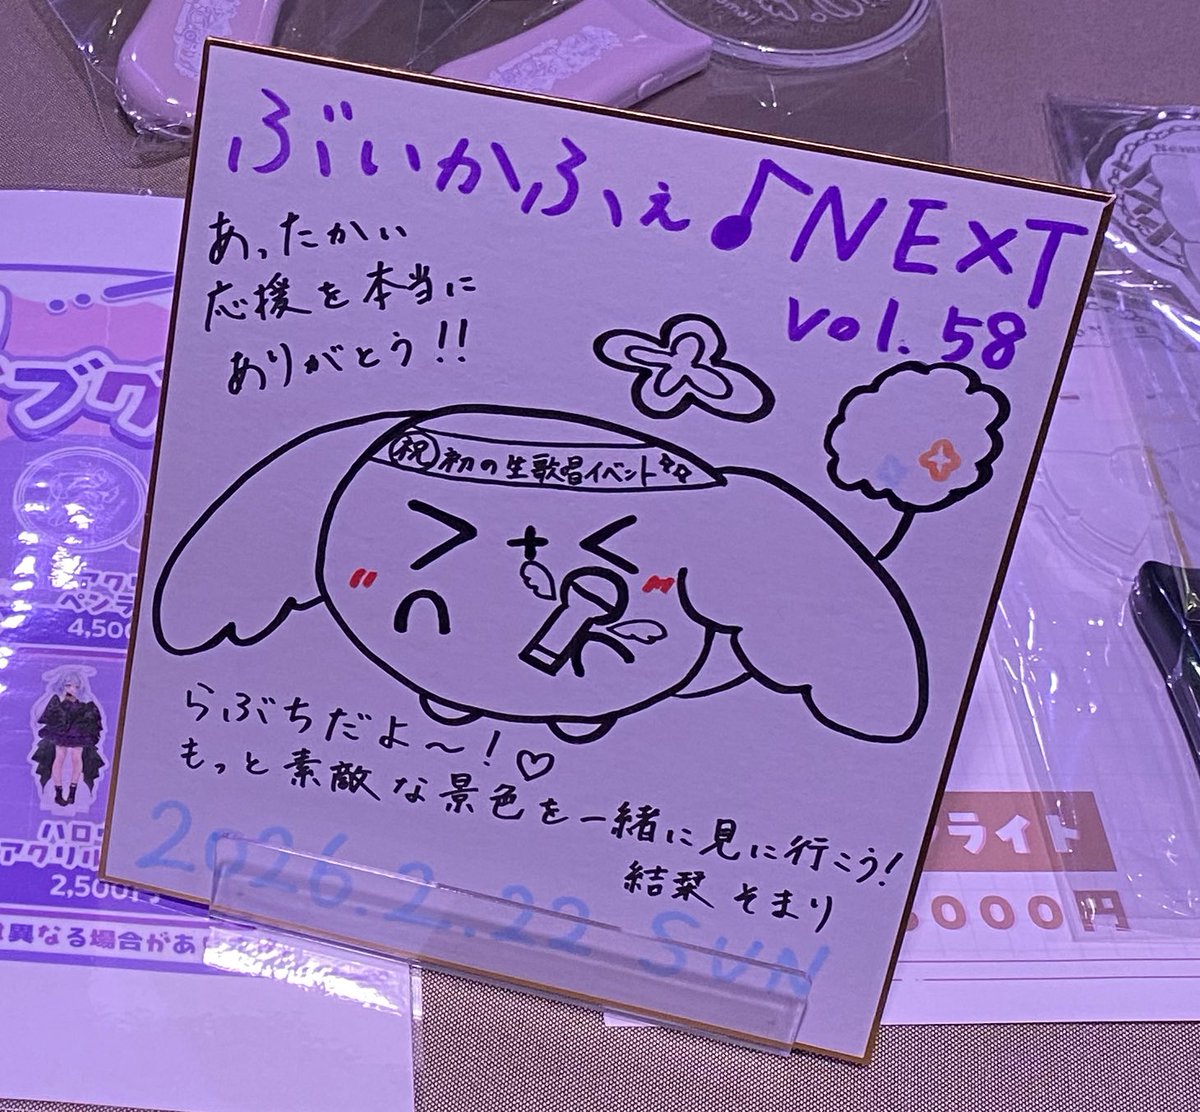 ぶいかふぇ♪NEXT
vol.58
あったかい
応援を本当に
ありがとう!!
祝 初の生歌唱イベント
らぶちだよ〜!♡
もっと素敵な景色を一緒に見に行こう!
結栞そまり
2026.2.22 SUN
ブグ
アクリ
ペンラ
4,500
ハロ
アクリル
2,500円
異なる場合があ
ライト
,000円